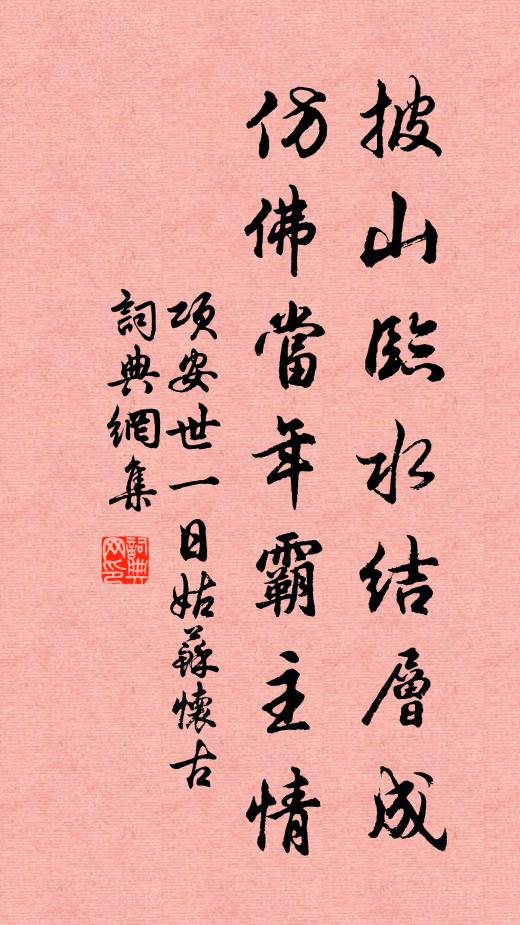 披山臨水結層成
仿佛當年霸主情
項安世一日姑蘇懷古
詞典網集
詞典网印